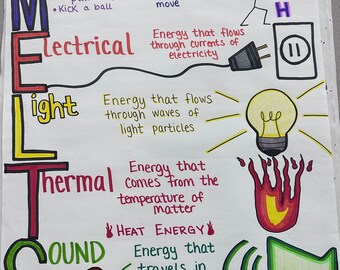 • Kick a ball
move
H
M
Electrical
Energy that flows
through currents of
electricity
Light
Energy that flows
through waves of
light particles
Thermal
Energy that
comes from the
temperature of
matter
HEAT ENERGY
SOUND
Energy that
travels in